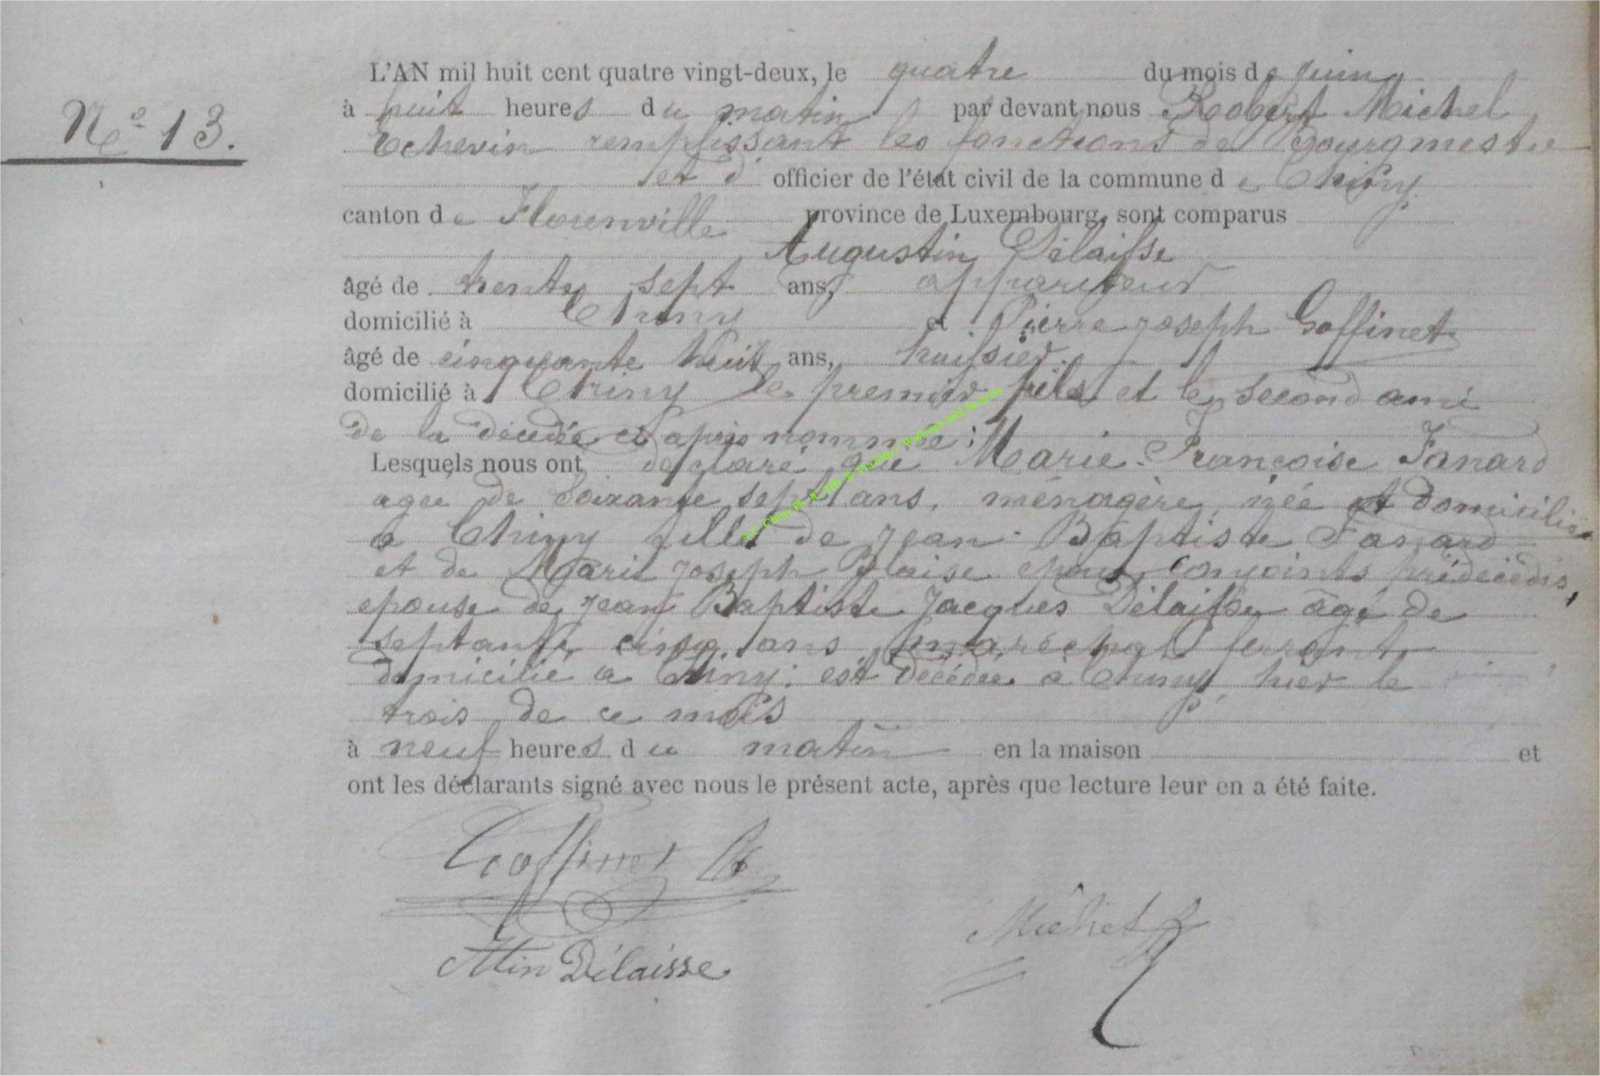 L'AN mil huit cent quatre vingt-deux, le quatre du mois de juin
N° 13.
à huit heures du matin par devant nous Robert Michel
Echevin remplissant les fonctions de Bourgmestre
et d' officier de l'état civil de la commune de Chiny
canton de Florenville province de Luxembourg, sont comparus
Augustin Délaisse
âgé de trente sept ans, appariteur
domicilié à Chiny et Pierre Joseph Goffinet
âgé de cinquante huit ans, huissier
domicilié à Chiny le premier fils et le second ami
de la décédée ci après nommée :
Lesquels nous ont déclaré que Marie-Françoise Fanard
agée de soixante sept ans, ménagère, née et domiciliée
à Chiny fille de Jean-Baptiste Fanard
et de Marie Joseph Blaise conjoints prédécédés,
épouse de Jean Baptiste Jacques Délaisse âgé de
septante cinq ans maréchal ferrant
domicilié à Chiny; est décédée à Chiny, hier le
trois de ce mois
à neuf heures du matin en la maison et
ont les déclarants signé avec nous le présent acte, après que lecture leur en a été faite.
Goffinet
Michel R
Atin Délaisse